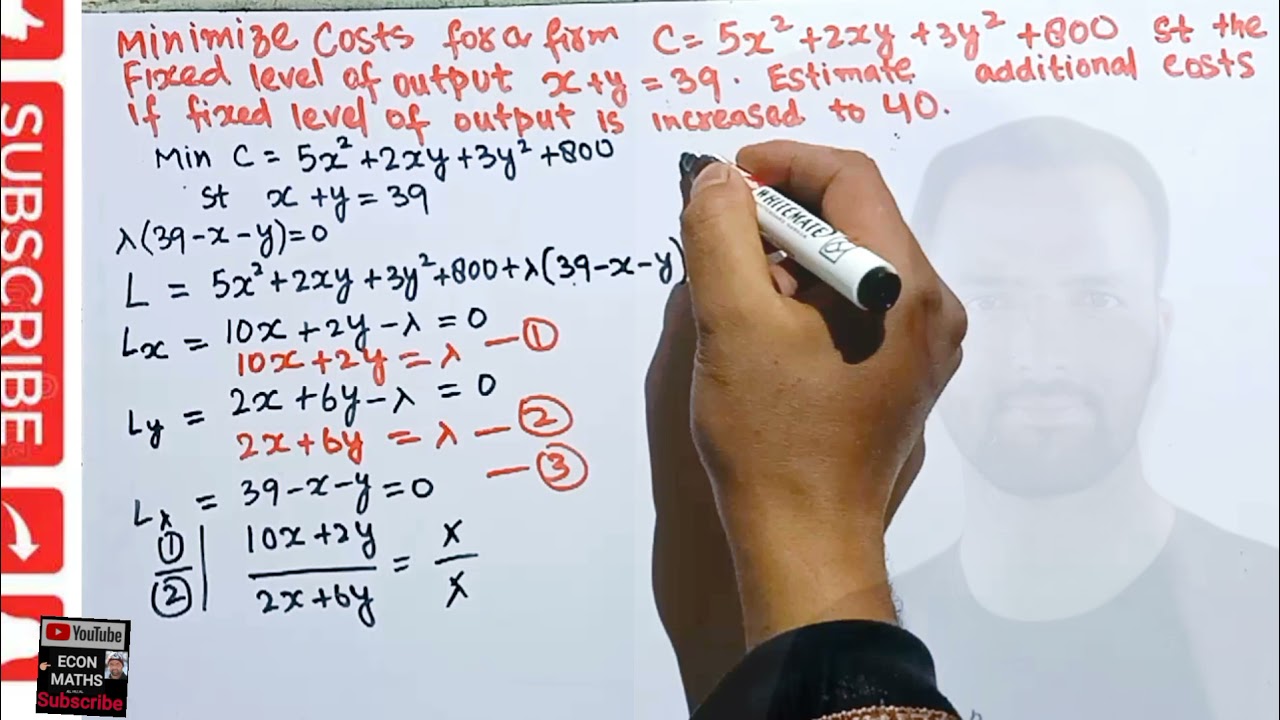 Minimize Costs for a firm C = 5x² + 2xy + 3y² + 800 st the
Fixed level of output x + y = 39. Estimate additional costs
if fixed level of output is increased to 40.
Min C = 5x² + 2xy + 3y² + 800
st x + y = 39
λ(39 - x - y) = 0
L = 5x² + 2xy + 3y² + 800 + λ(39 - x - y)
Lx = 10x + 2y - λ = 0
10x + 2y = λ — ①
Ly = 2x + 6y - λ = 0
2x + 6y = λ — ②
— ③
Lλ = 39 - x - y = 0
① 10x + 2y = λ
② 2x + 6y λ
WHITEMATE
SUBSCRIBE
YouTube
ECON
MATHS
Subscribe